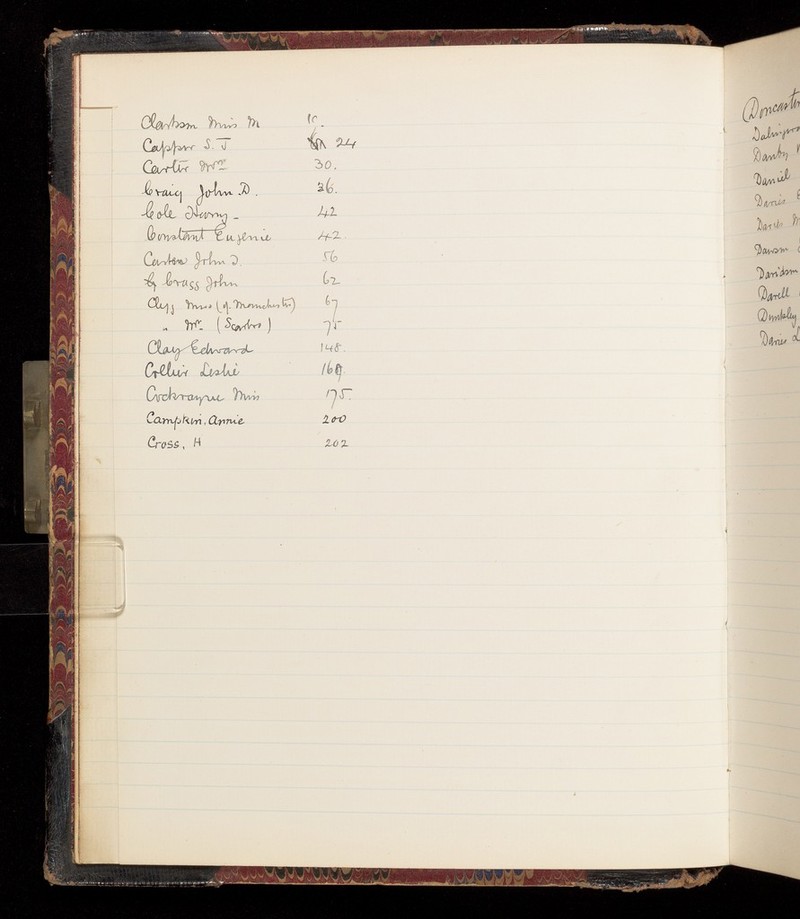 Clarkson Miss M 10.
Capper S. J 24
Carter Mrs 30.
Craig John D. 36.
Cole Harry - 42
Constant Eugenie 42
Carter John D. 56
Cragg John 62
Clegg Miss (of Manchester) 67
" Mr. (Scarbro) 75
Clay Edward 148.
Collier Leslie 169.
Cockrayne Miss 175.
Campkin. Annie 200
Cross, H 202
Doncaster
Danby
Daniel
Davies
Dawson
Davidson
Darell
Dunkley
Davies L